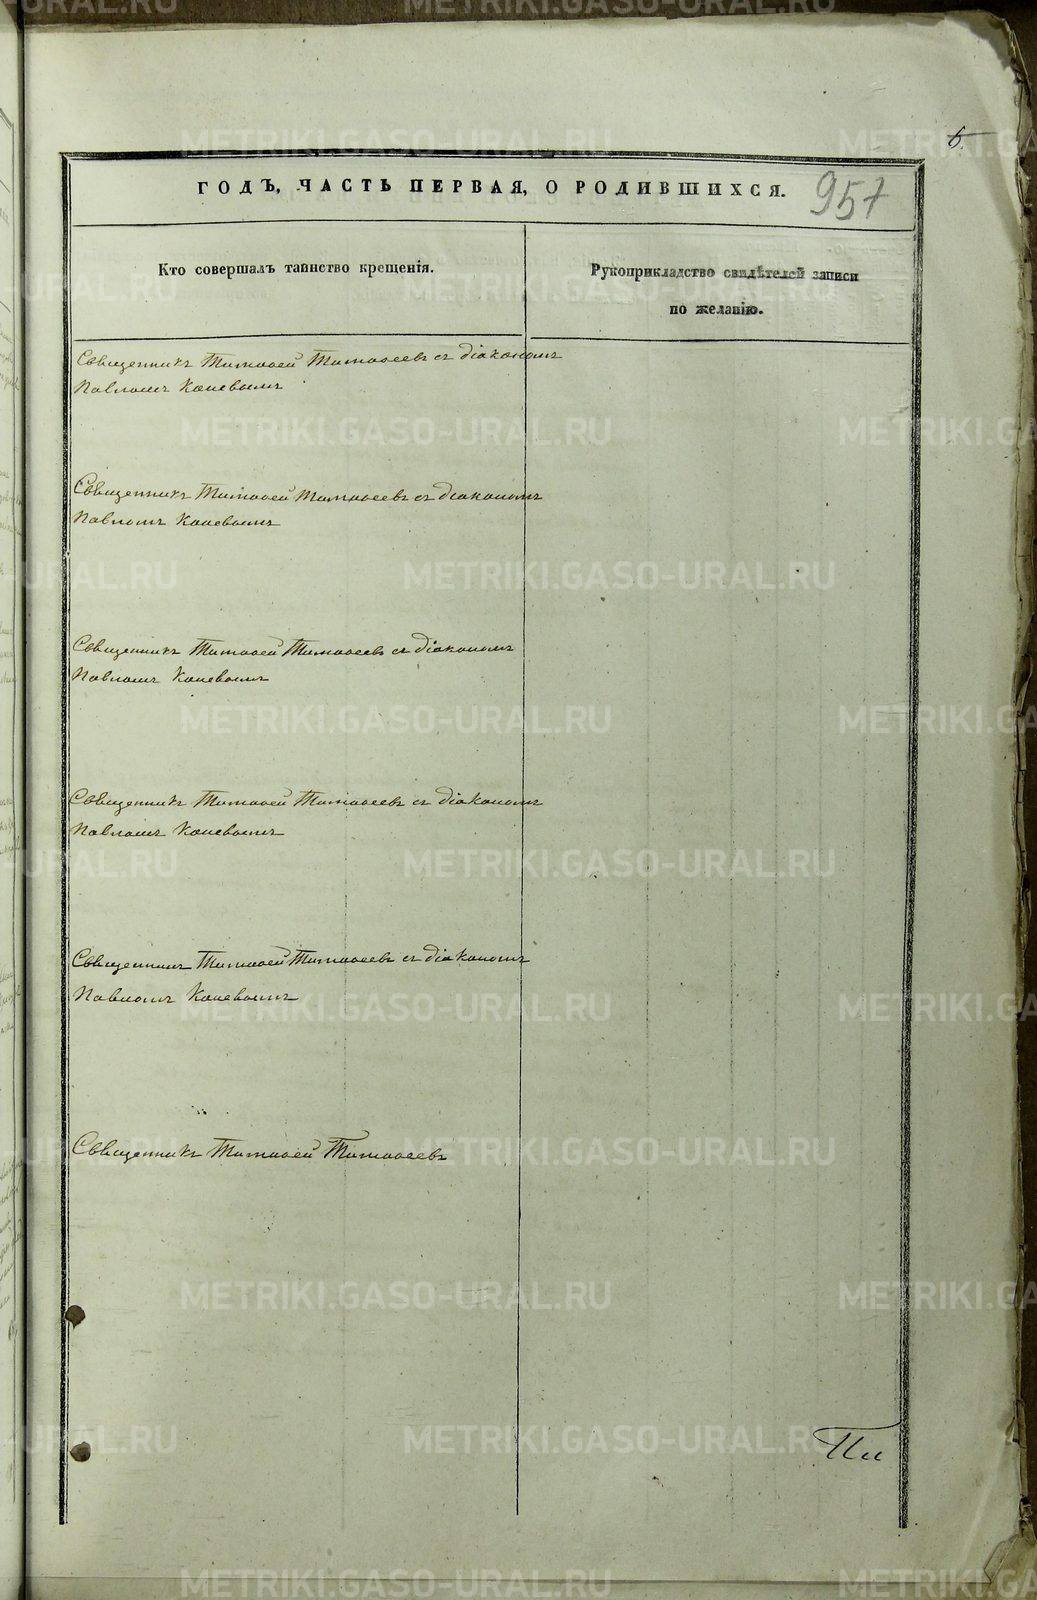 5.
ГОДЪ, ЧАСТЬ ПЕРВАЯ, О РОДИВШИХСЯ. 957
Кто совершалъ таинство крещенія.
Рукоприкладство свидѣтелей записи
по желанію.
Священникъ Тимоѳей Тимоѳеевъ съ діакономъ
Павломъ Коневымъ
Священникъ Тимоѳей Тимоѳеевъ съ діакономъ
Павломъ Коневымъ
Священникъ Тимоѳей Тимоѳеевъ съ діакономъ
Павломъ Коневымъ
Священникъ Тимоѳей Тимоѳеевъ съ діакономъ
Павломъ Коневымъ
Священникъ Тимоѳей Тимоѳеевъ съ діакономъ
Павломъ Коневымъ
Священникъ Тимоѳей Тимоѳеевъ
METRIKI.GASO-URAL.RU